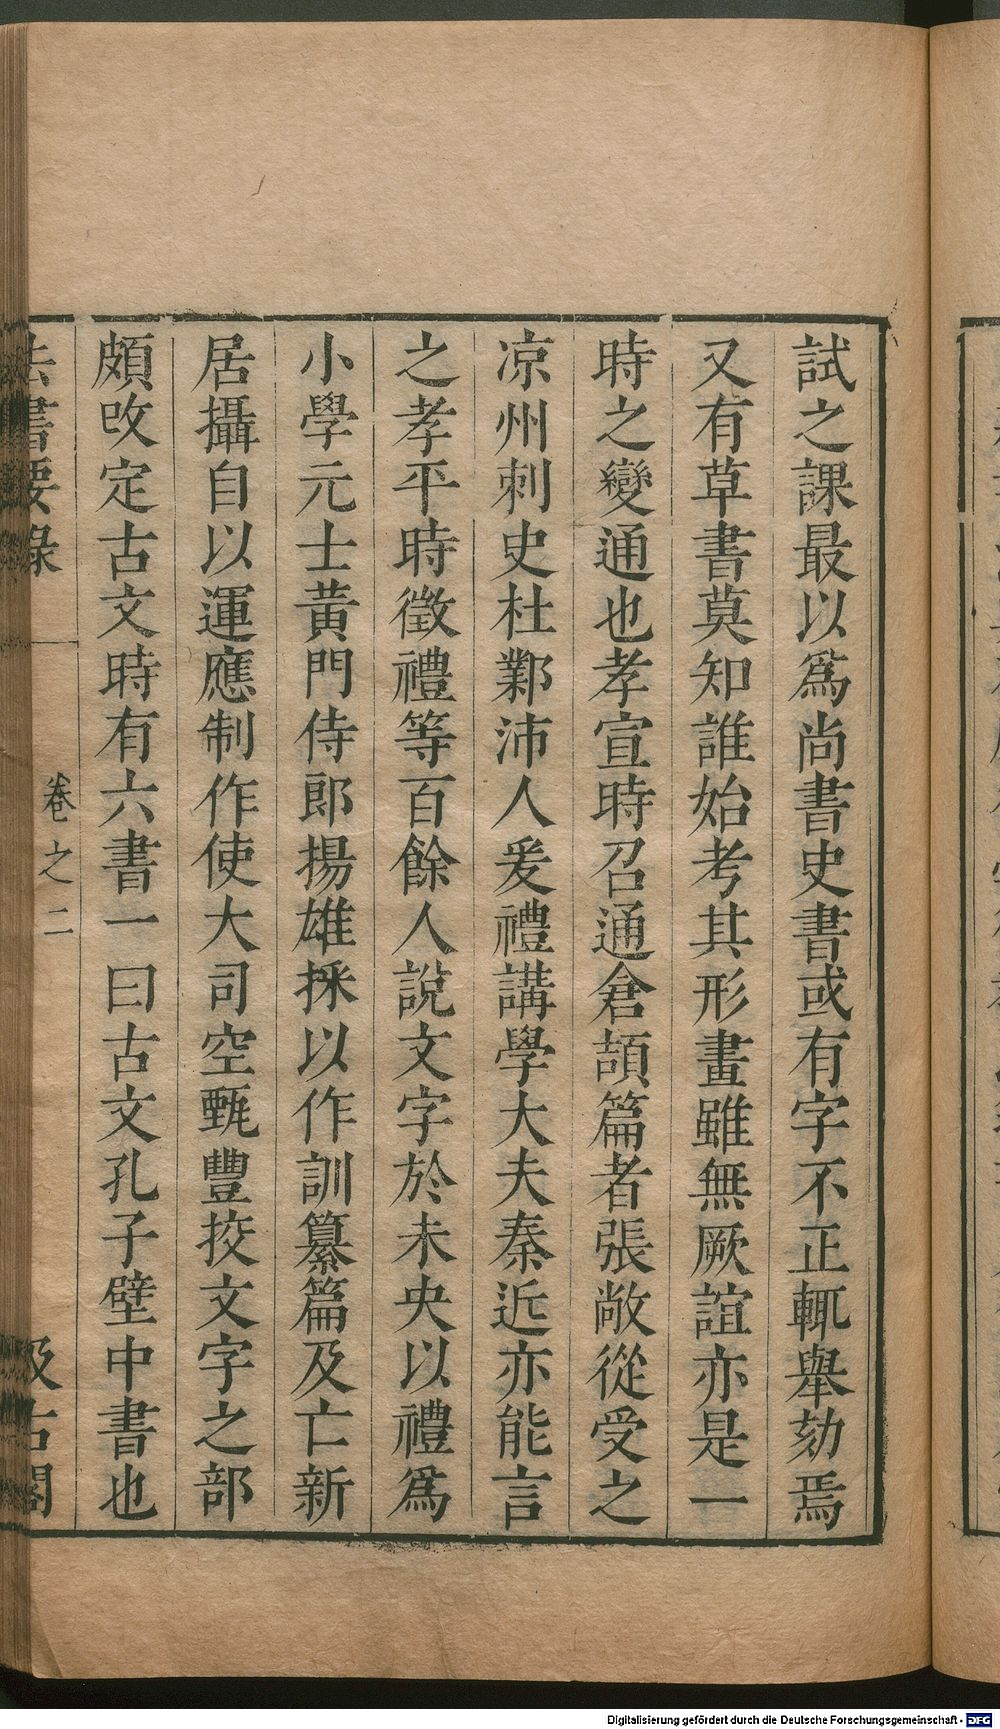 試之課最以爲尚書史書或有字不正輒舉劾焉
又有草書莫知誰始考其形畫雖無厥誼亦是一
時之變通也孝宣時召通倉頡篇者張敞從受之
凉州刺史杜鄴沛人爰禮講學大夫秦近亦能言
之孝平時徵禮等百餘人說文字於未央以禮爲
小學元士黃門侍郎揚雄採以作訓纂篇及亡新
居攝自以運應制作使大司空甄豐挍文字之部
頗改定古文時有六書一曰古文孔子壁中書也
法書要錄 卷之二 汲古閣
Digitalisierung gefördert durch die Deutsche Forschungsgemeinschaft - DFG